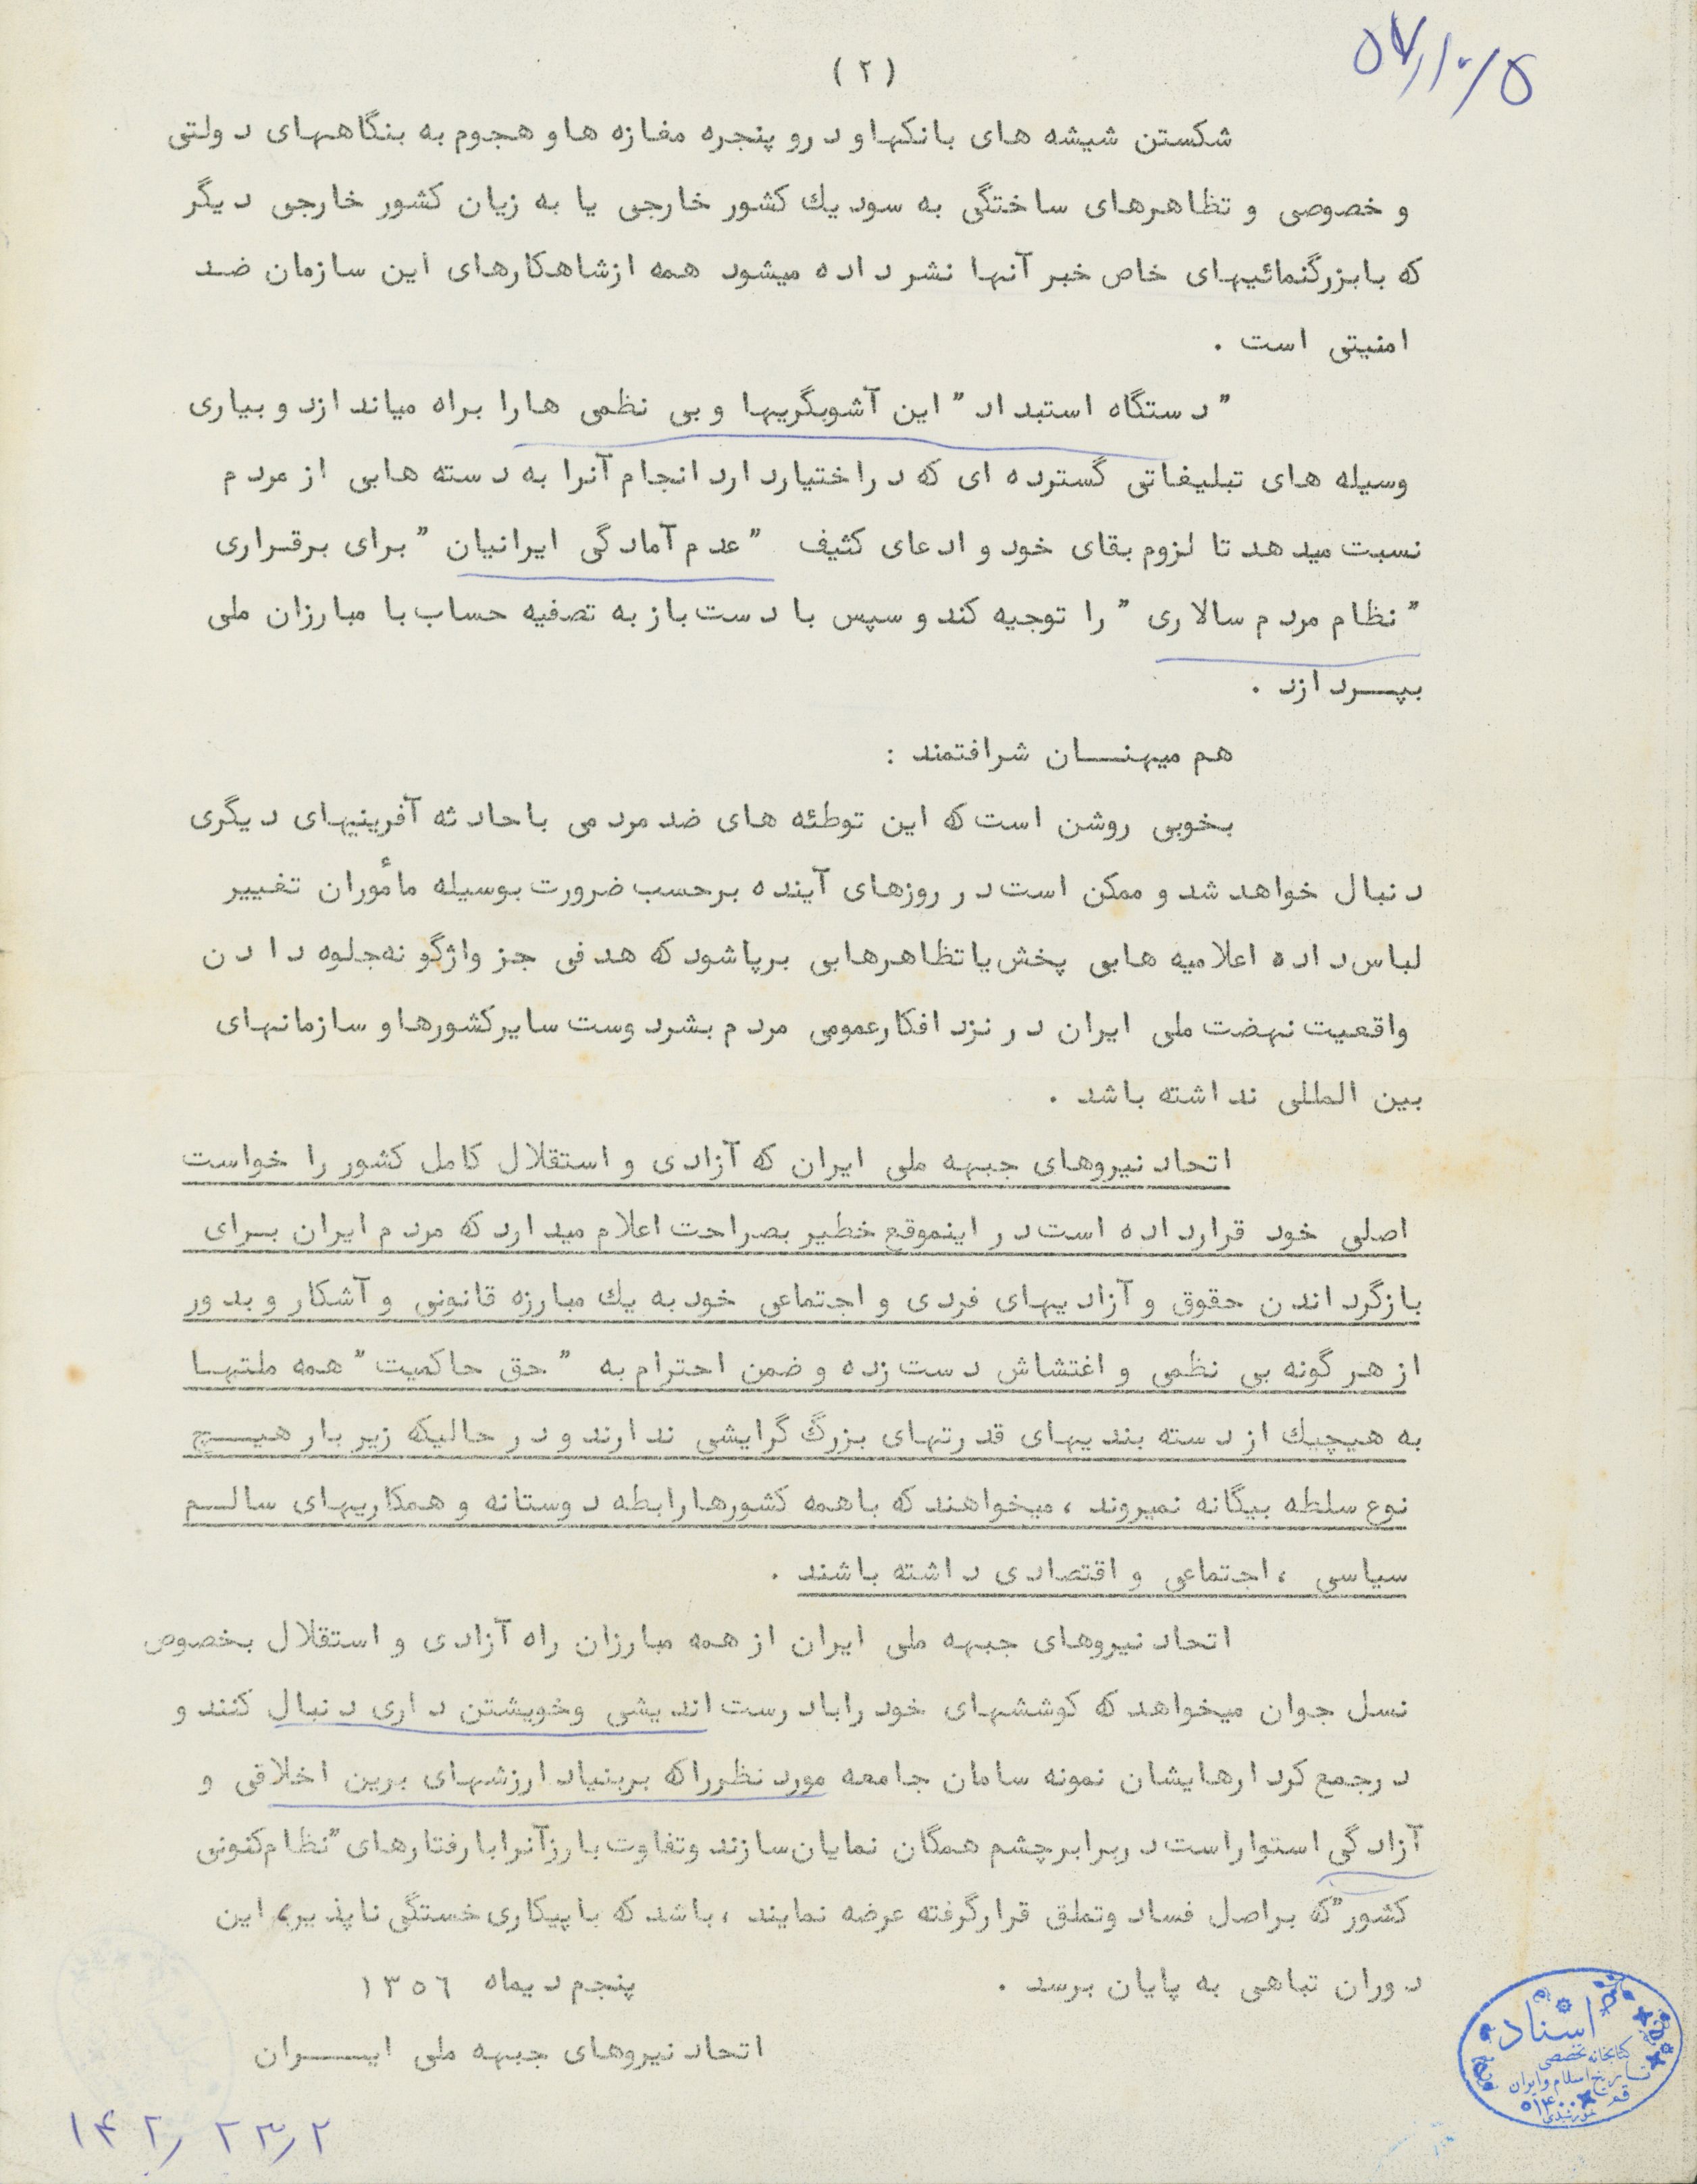 ۵۷/۱۰/۵
(۲)
شکستن شیشه های بانکها و در و پنجره مغازه ها و هجوم به بنگاههای دولتی
و خصوصی و تظاهرهای ساختگی به سود یك کشور خارجی یا به زیان کشور خارجی دیگر
که با بزرگنمائیهای خاص خبر آنها نشر داده میشود همه از شاهکارهای این سازمان ضد
امنیتی است .
"دستگاه استبداد" این آشوبگریها و بی نظمی ها را براه میاندازد و بیاری
وسیله های تبلیغاتی گسترده ای که در اختیار دارد انجام آنرا به دسته هایی از مردم
نسبت میدهد تا لزوم بقای خود و ادعای کثیف "عدم آمادگی ایرانیان" برای برقراری
"نظام مردم سالاری" را توجیه کند و سپس با دست باز به تصفیه حساب با مبارزان ملی
بپردازد .
هم میهنان شرافتمند :
بخوبی روشن است که این توطئه های ضد مردمی با حادثه آفرینیهای دیگری
دنبال خواهد شد و ممکن است در روزهای آینده برحسب ضرورت بوسیله مأموران تغییر
لباس داده اعلامیه هایی پخش یا تظاهرهایی برپا شود که هدفی جز واژگونه جلوه دادن
واقعیت نهضت ملی ایران در نزد افکار عمومی مردم بشردوست سایر کشورها و سازمانهای
بین المللی نداشته باشد .
اتحاد نیروهای جبهه ملی ایران که آزادی و استقلال کامل کشور را خواست
اصلی خود قرار داده است در اینموقع خطیر بصراحت اعلام میدارد که مردم ایران برای
بازگرداندن حقوق و آزادیهای فردی و اجتماعی خود به یك مبارزه قانونی و آشکار و بدور
از هر گونه بی نظمی و اغتشاش دست زده و ضمن احترام به "حق حاکمیت" همه ملتها
به هیچیك از دسته بندیهای قدرتهای بزرگ گرایشی ندارند و در حالیکه زیر بار هیچ
نوع سلطه بیگانه نمیروند ، میخواهند که با همه کشورها رابطه دوستانه و همکاریهای سالم
سیاسی ، اجتماعی و اقتصادی داشته باشند .
اتحاد نیروهای جبهه ملی ایران از همه مبارزان راه آزادی و استقلال بخصوص
نسل جوان میخواهد که کوششهای خود را با درست اندیشی و خویشتن داری دنبال کنند و
در جمع کردارهایشان نمونه سامان جامعه مورد نظر را که بر بنیاد ارزشهای برین اخلاقی و
آزادگی استوار است در برابر چشم همگان نمایان سازند و تفاوت بارز آنرا با رفتارهای "نظام کنونی
کشور" که بر اصل فساد و تملق قرار گرفته عرضه نمایند ، باشد که با پیکاری خستگی ناپذیر ، این
دوران تباهی به پایان برسد .
پنجم دیماه ۱۳۵۶
اتحاد نیروهای جبهه ملی ایران
اسناد
کتابخانه تخصصی
تاریخ اسلام و ایران
قم
۱۴۲/ ۲۳/۲